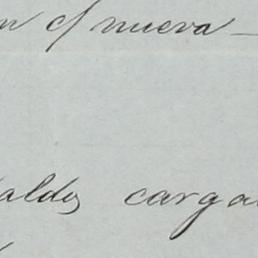 n c/ nueva —
aldos carga